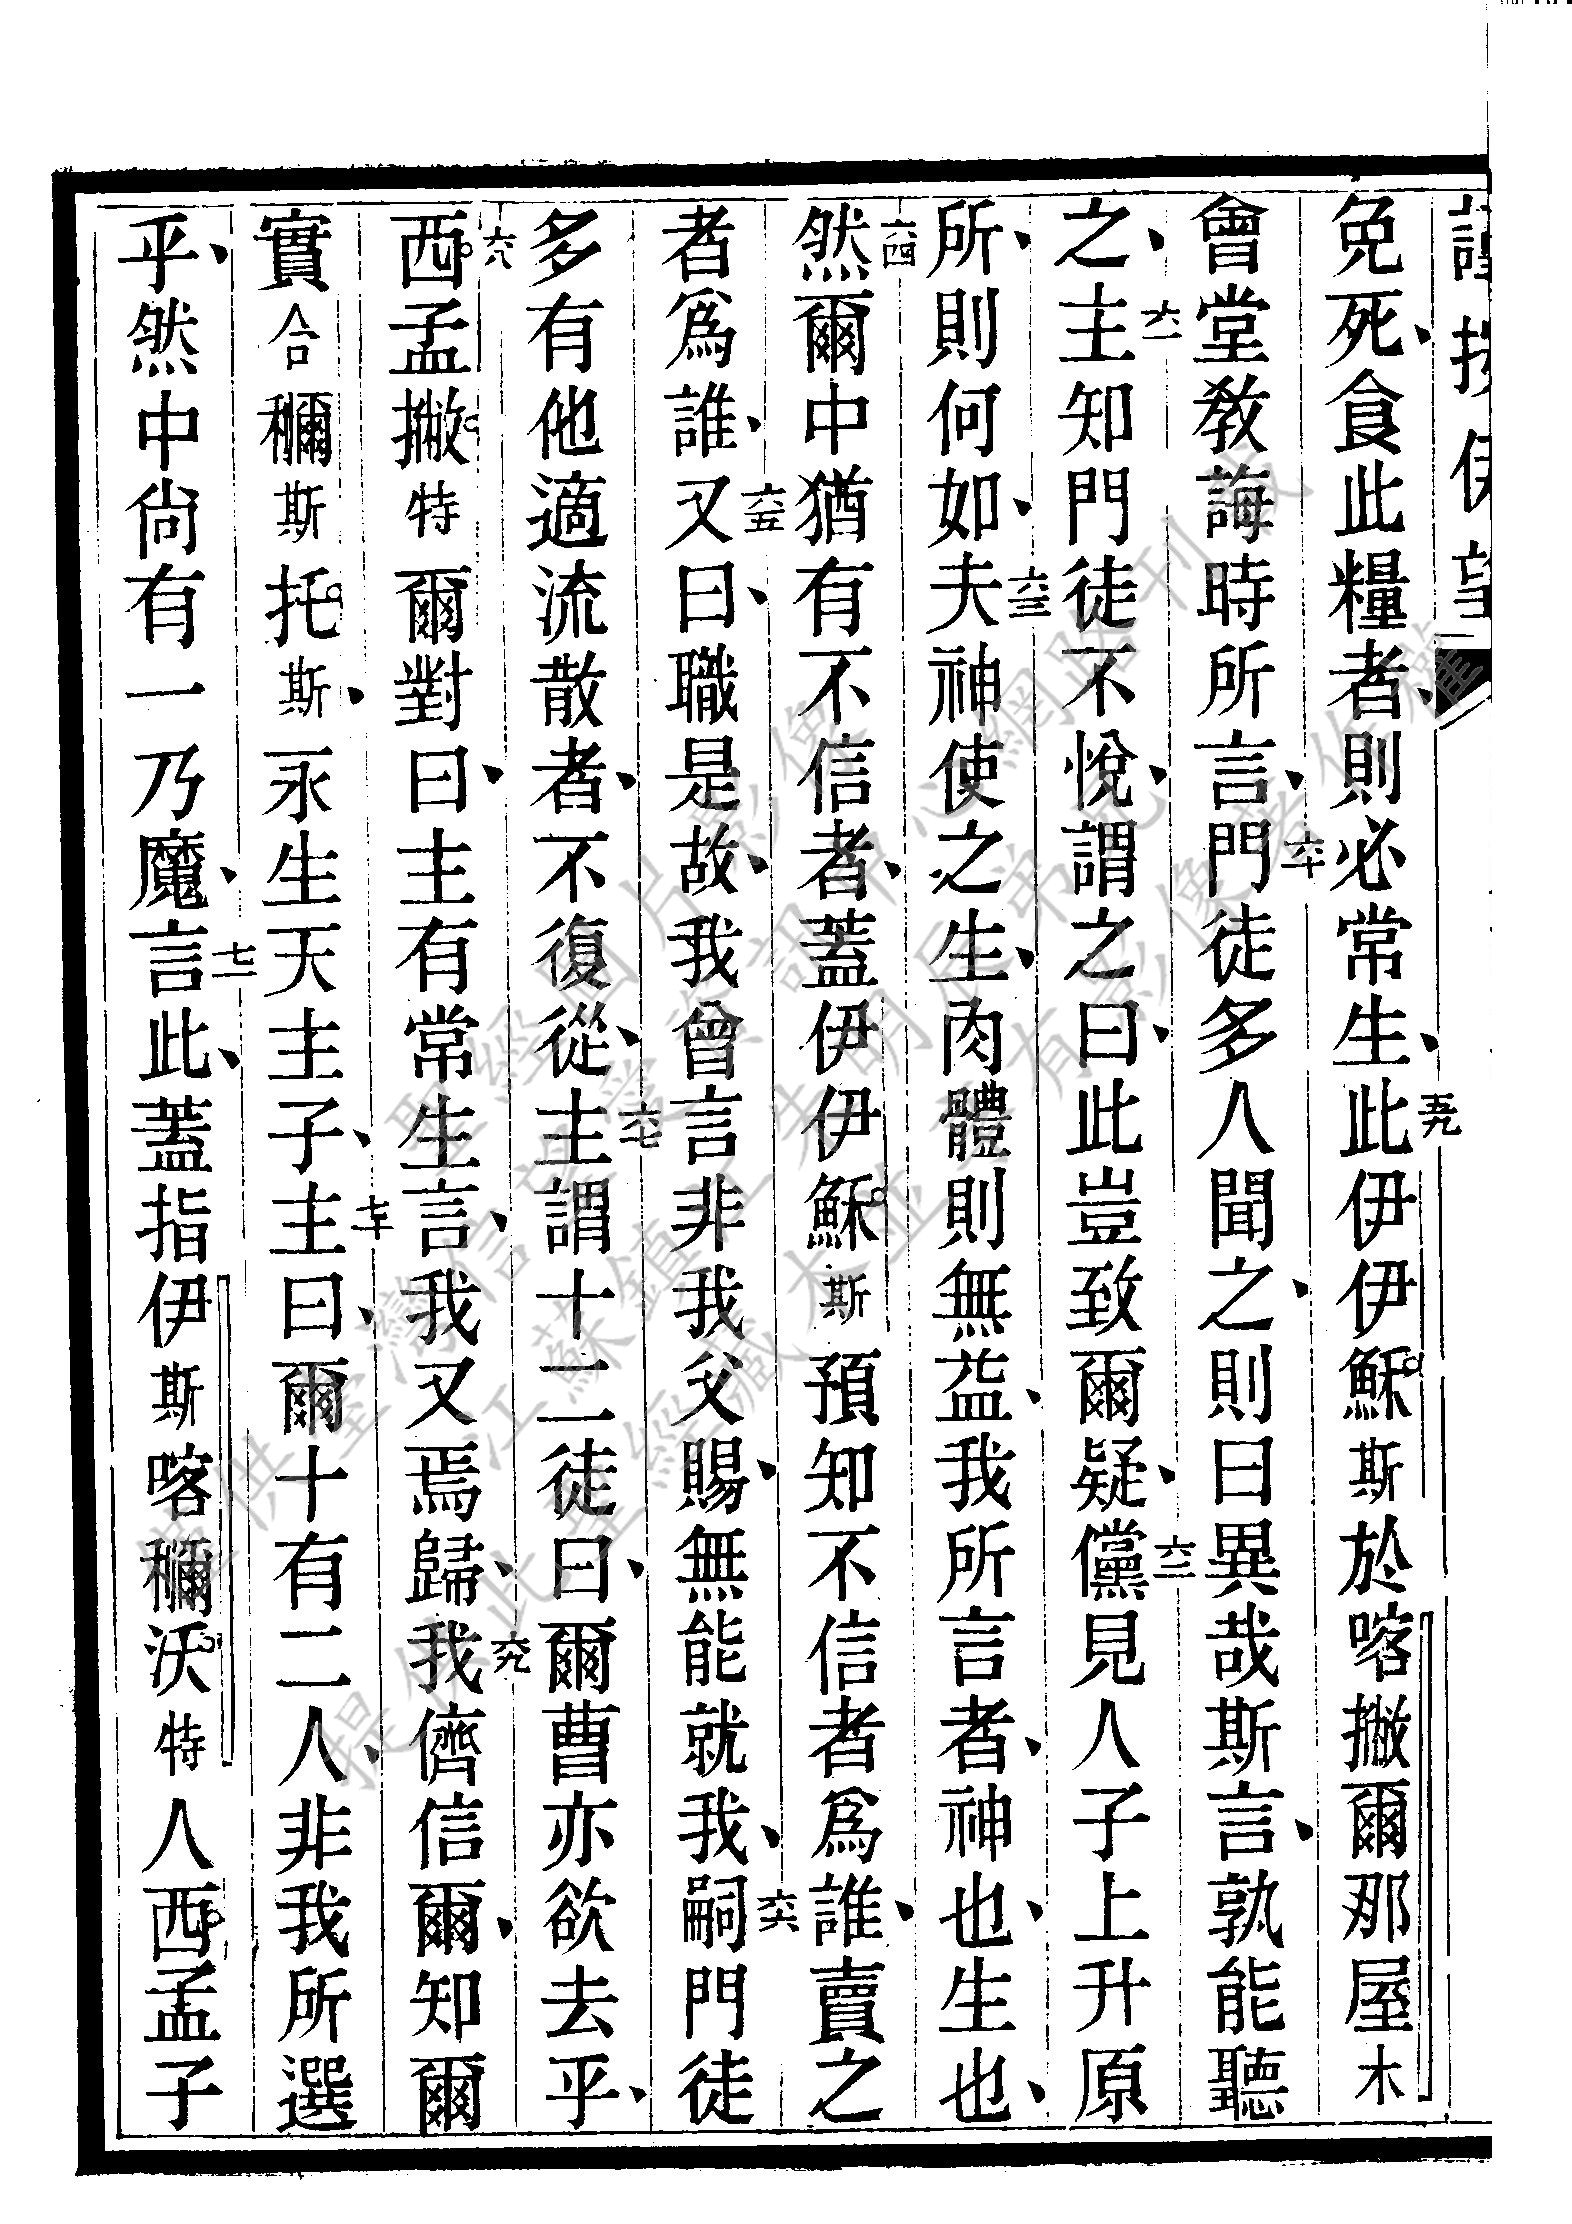 免死、食此糧者、則必常生、五九此伊伊穌斯於喀撇爾那屋木
會堂教誨時所言、六十門徒多人聞之、則曰異哉斯言、孰能聽
之、六一主知門徒不悅、謂之曰、此豈致爾疑、六二儻見人子上升原
所、則何如、六三夫神使之生、肉體則無益、我所言者、神也、生也、
六四然爾中猶有不信者、蓋伊伊穌斯預知不信者爲誰、賣之
者爲誰、六五又曰、職是故、我曾言非我父賜、無能就我、六六嗣門徒
多有他適流散者、不復從、六七主謂十二徒曰、爾曹亦欲去乎、
六八西孟撇特爾對曰、主有常生言、我又焉歸、六九我儕信爾、知爾
實合穪斯托斯、永生天主子、七十主曰、爾十有二人、非我所選
乎、然中尙有一乃魔、七一言此、蓋指伊斯喀穪沃特人西孟子